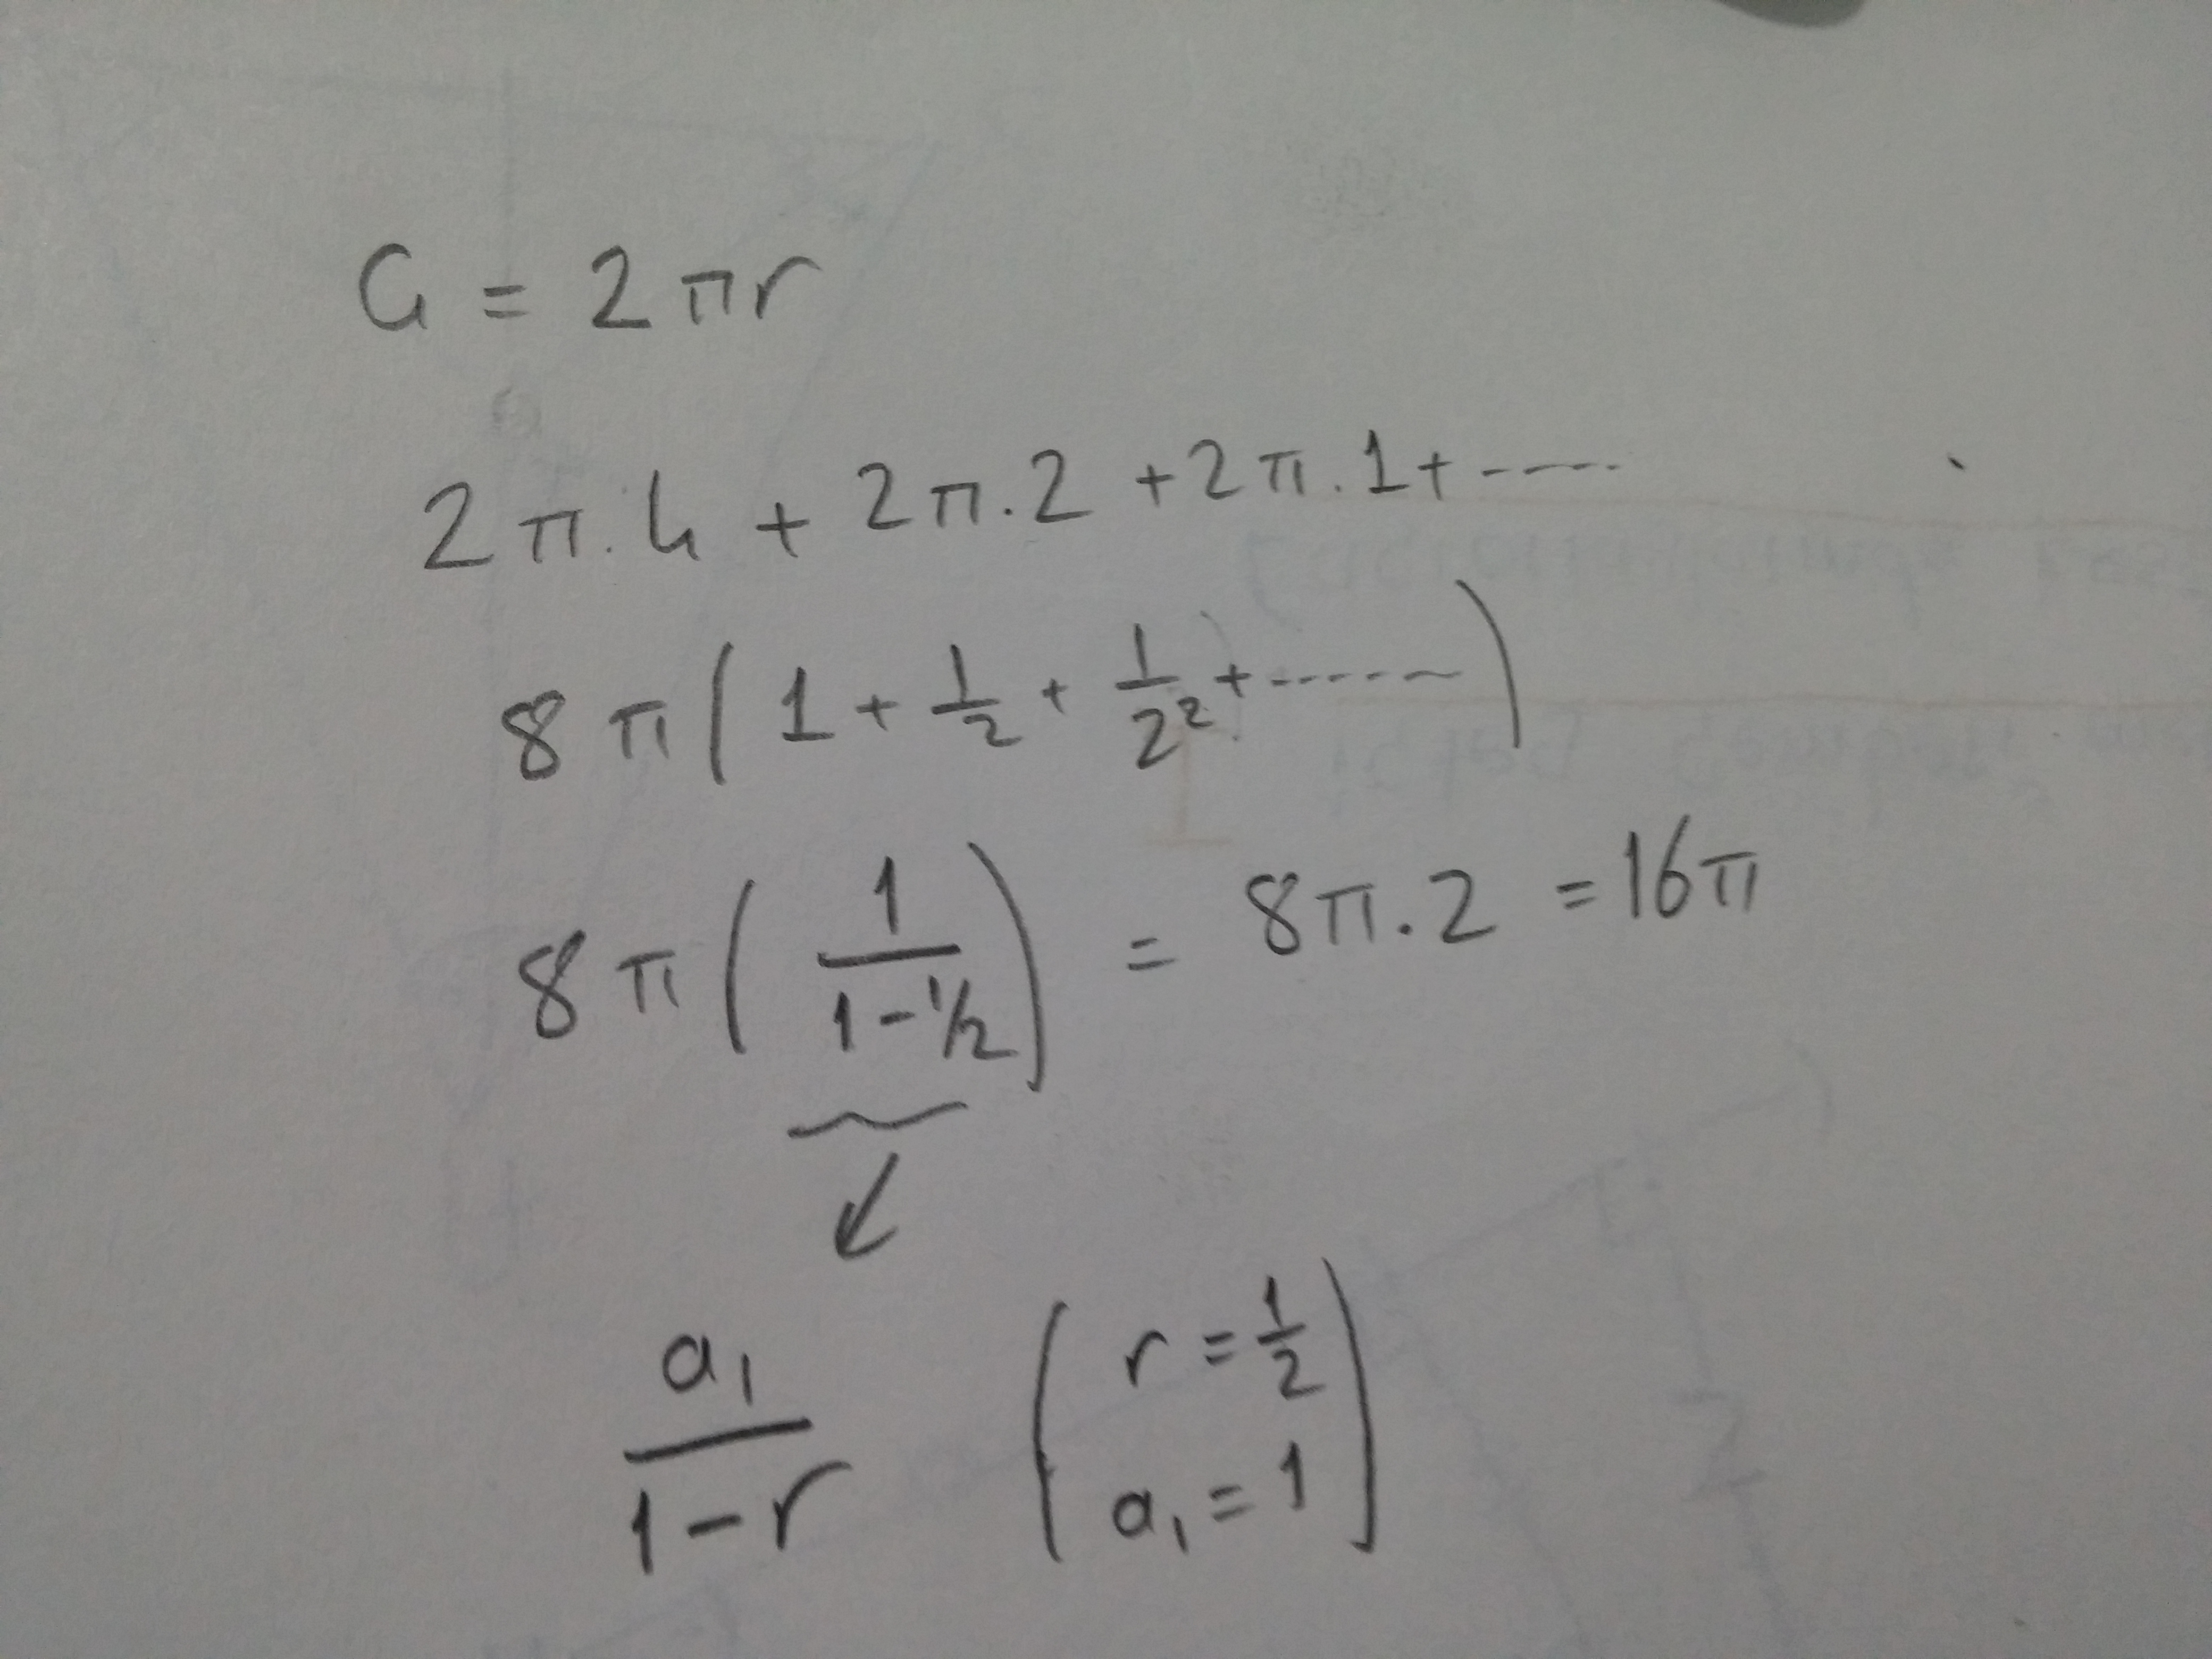 Ç = 2πr
2π.4 + 2π.2 + 2π.1 + ......
8π(1 + 1/2 + 1/2² + ......)
8π(1/(1-1/2)) = 8π.2 = 16π
a₁/(1-r) (r = 1/2
a₁ = 1)